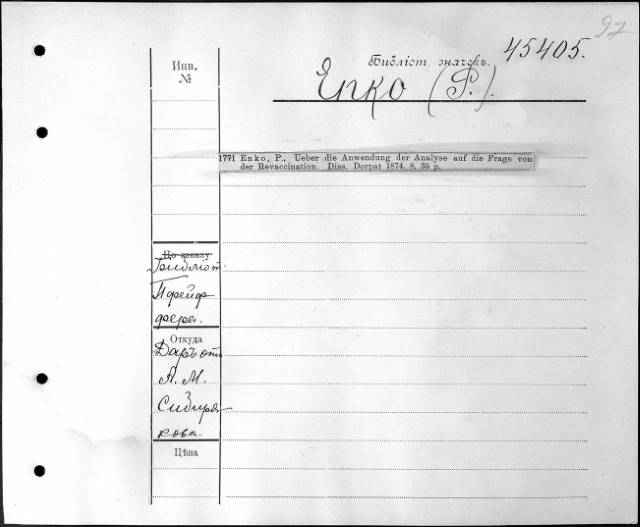 97
Библіот. значекъ.
45405.
Инв.
№
Enko (P.).
1771 Enko, P., Ueber die Anwendung der Analyse auf die Frage von
der Revaccination. Diss. Dorpat 1874. 8. 35 p.
По заказу
Библіот.
Пфейф
фера.
Откуда
Даръ отъ
А. М.
Сибиря
кова.
Цѣна